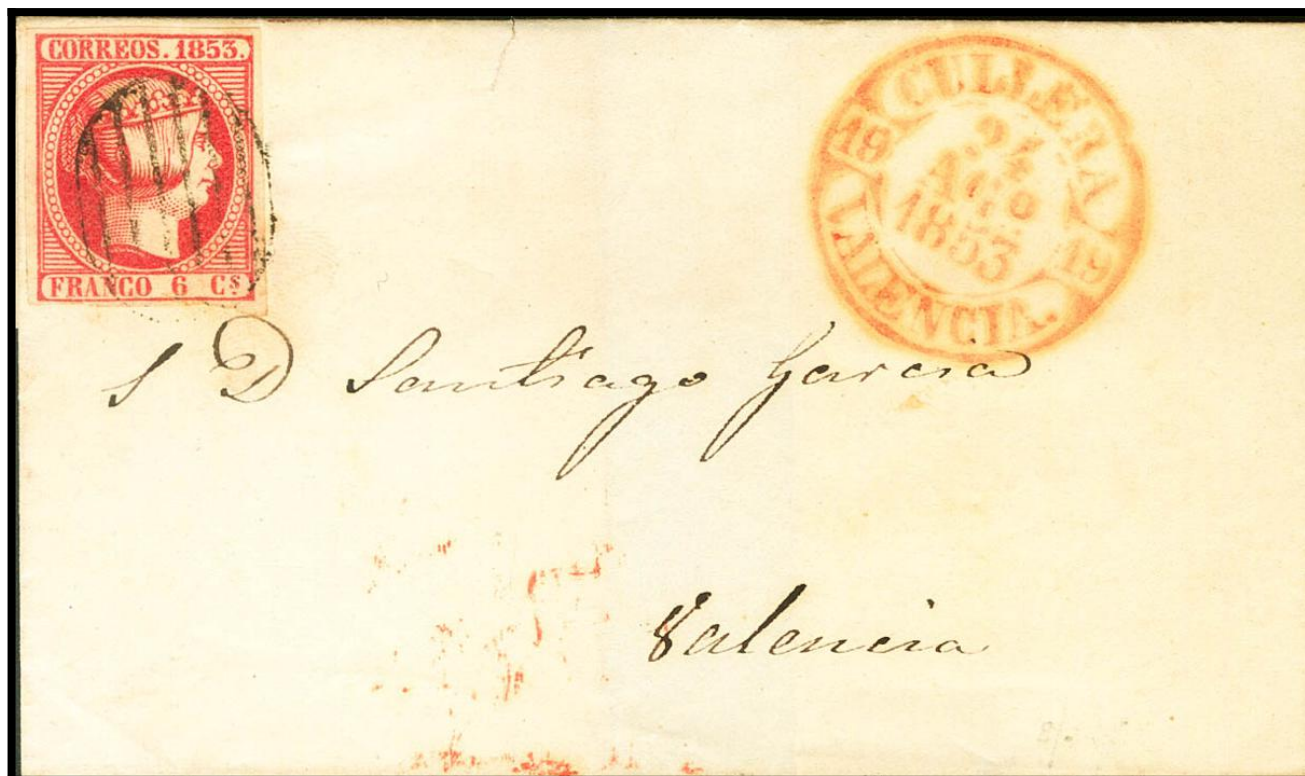 CORREOS. 1853.
FRANCO 6 Cs
CULLERA
19
24
AGO
1853
19
VALENCIA.
S D Santiago Garcia
Valencia